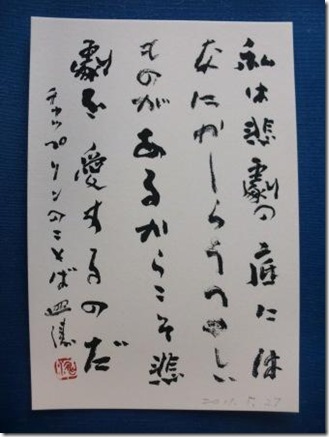 私は悲劇の底には
なにかしらうつくしい
ものがあるからこそ悲
劇を愛するのだ
チャップリンのことば
2011.5.27